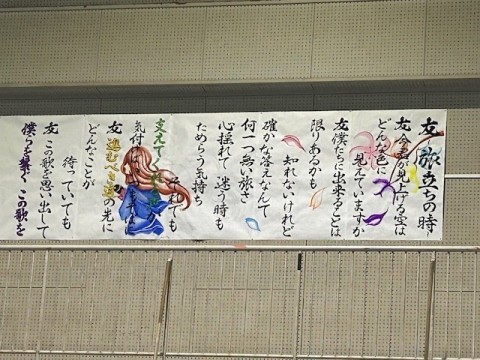 友 旅立ちの時
友 今君が見上げる空は
どんな色に
見えていますか
友 僕たちに出来ることは
限りあるかも
知れないけれど
確かな答えなんて
何一つ無い旅さ
心揺れて 迷う時も
ためらう気持ち
支えてくれる
それでも
気付け
友 進むべき道の光に
どんなことが
待っていても
友 この歌を思い出して
僕らを繋ぐ この歌を